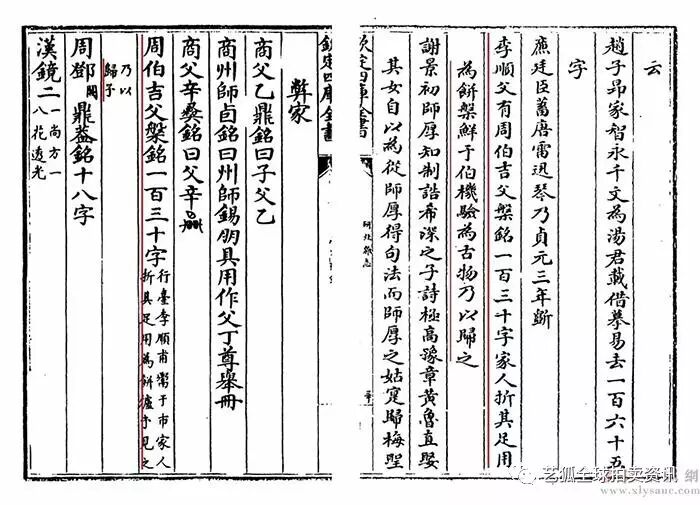 云
趙子昂家智永千文為湯君載借摹易去一百六十五
字
廉廷臣蓄唐雷迅琴乃貞元三年斵
李順父有周伯吉父槃銘一百三十字家人折其足用
為餅槃鮮于伯機驗為古物乃以歸之
謝景初師厚知制誥希深之子詩極高豫章黃魯直娶
其女自以為從師厚得句法而師厚之姑寔歸梅聖
研北雜志
欽定四庫全書
彝家
商父乙鼎銘曰子父乙
商州師卣銘曰州師錫朋具用作父丁尊舉冊
商父辛彝銘曰父辛
周伯吉父槃銘一百三十字行臺李順甫鬻于市家人
折其足用為餅爐予見之
乃以
歸予
周鄧鼎葢銘十八字
漢鏡二一尚方一
八花透光
艺狐全球拍卖资讯
網
www.xlysauc.com